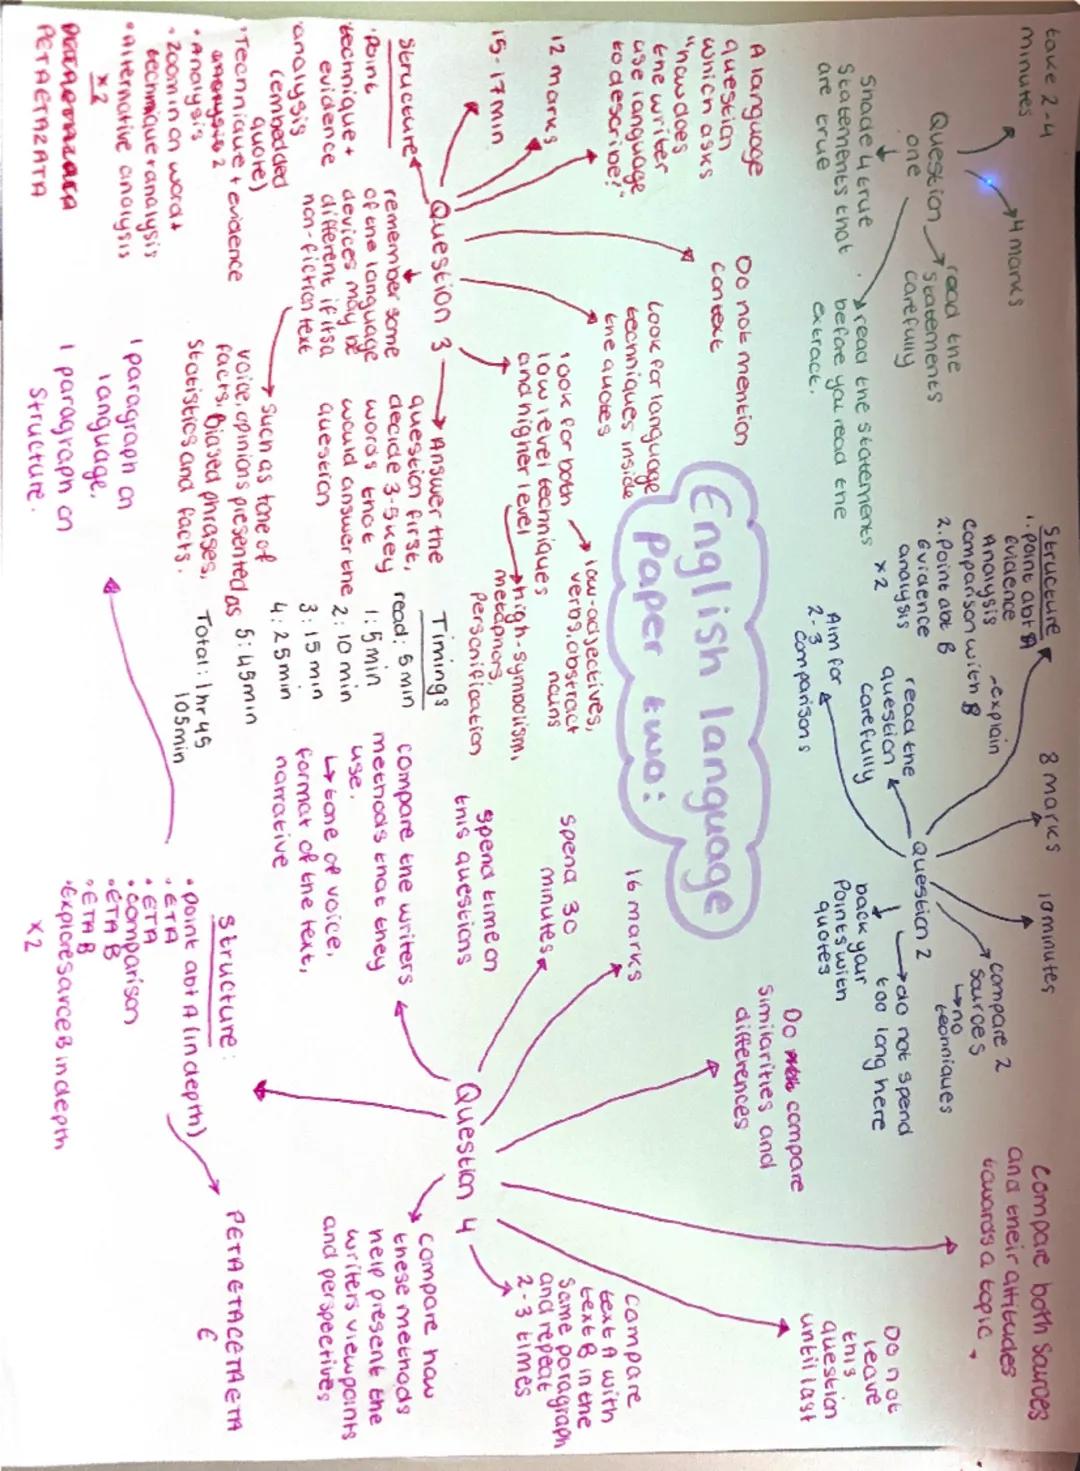 English language
Paper two:
take 2-4
minutes
4 marks
Question
one
read the
statements
carefully
Shade 4 true
statements that
are true
read the statements
before you read the
extract.
Structure
1. Point abt A
Evidence
Analysis -explain
comparison with B
2. Point abt B
Evidence
analysis
x2
8 marks
10 minutes
Question 2
read the
question
carefully
Aim for
2-3
comparisons
compare 2
sources
↳no
techniques
do not spend
too long here
back your
Points with
quotes
A language
question
which asks
"how does
the writer
use language
to describe?"
12 marks
15-17 min
Do not mention
context
Look for language
techniques inside
the quotes
Question 3
look for both
low level techniques
and higher level
low-adjectives,
verbs, abstract
nouns
high-symbolism,
metaphors,
personification
Answer the
question first,
decide 3-5 key
words that
would answer the
question
Structure
•point
technique +
evidence
analysis
(embedded
quote)
•Technique + evidence
2
•Analysis
•zoom in on word +
technique + analysis
•alternative analysis
x2
PETAETAZATA
remember some
of the language
devices may be
different if its a
non-fiction text
such as tone of
voice, opinions presented as
facts, Biased phrases,
Statistics and facts.
Timings
read: 5 min
1: 5 min
2: 10 min
3: 15 min
4: 25min
5: 45min
Total: 1hr 45
105min
Question 4
16 marks
spend 30
minutes
spend time on
this questions
compare the writers
methods that they
use.
↳ tone of voice,
format of the text,
narrative
Do compare
similarities and
differences
compare both sources
and their attitudes
towards a topic.
Do not
leave
this
question
until last
compare
text A with
text B in the
same paragraph
and repeat
2-3 times
compare how
these methods
help present the
writers viewpoints
and perspectives
structure:
•point abt A (in depth)
•ETA
•ETA
•comparison
•ETA B
•ETA B
•Explore sarce B in depth
x2
PETA ETACETAETA
E
1 paragraph on
language.
1 paragraph on
Structure.